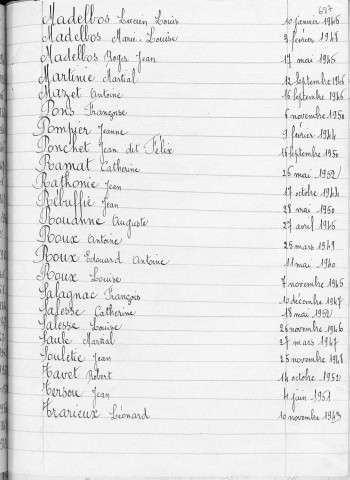 687
Madelbos Lucien Louis 10 janvier 1946
Madelbos Marie-Louise 3 février 1948
Madelbos Roger Jean 17 mai 1945
Martinie Martial 12 septembre 1946
Mazet Antoine 16 septembre 1946
Pons Françoise 8 novembre 1950
Pompier Jeanne 9 février 1944
Ponchet Jean dit Félix 18 septembre 1950
Ramat Catherine 26 mai 1952
Rathonie Jean 17 octobre 1944
Rébuffie Jean 28 mai 1950
Rouanne Auguste 27 avril 1945
Roux Antoine 25 mars 1949
Roux Edouard Antoine 11 mai 1940
Roux Louise 7 novembre 1945
Salagnac François 10 décembre 1947
Salesse Catherine 18 mai 1952
Salesse Louise 26 novembre 1946
Saule Martial 27 mars 1947
Souletie Jean 25 novembre 1948
Tavet Robert 14 octobre 1952
Tersou Jean 4 juin 1951
Trarieux Léonard 10 novembre 1943